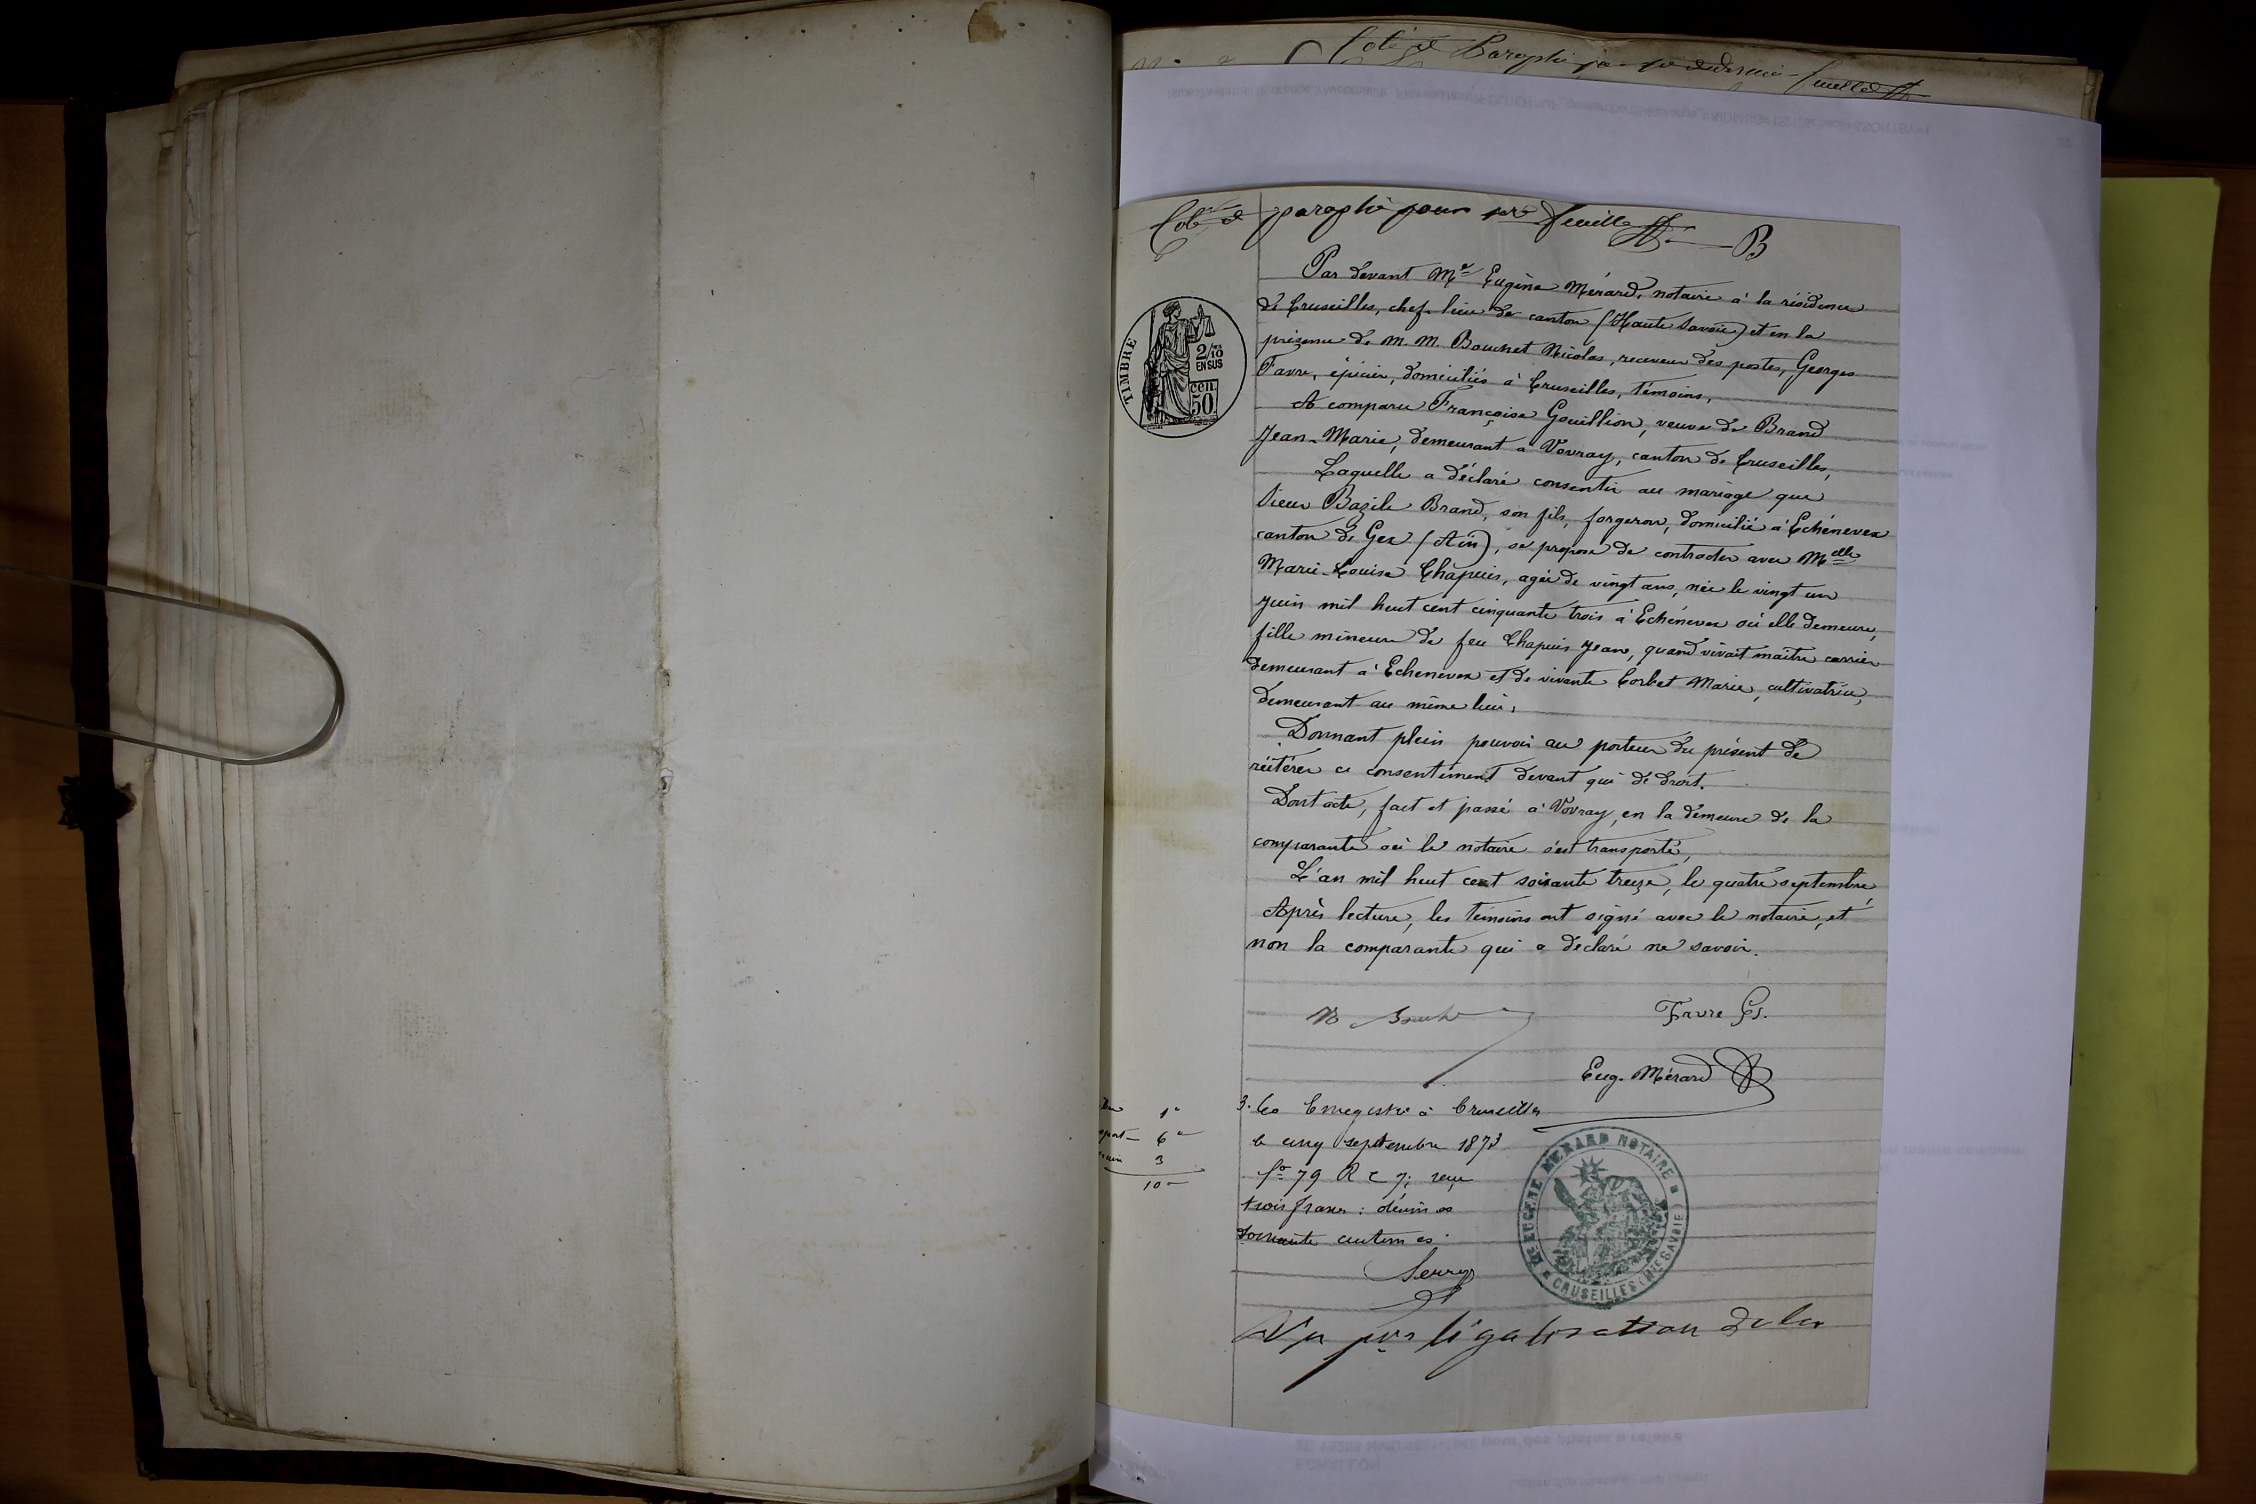 Coté et Paraphé feuillet
Coté et paraphé pour 1er feuille B
Par devant Me Eugène Mérard, notaire à la résidence
de Cruseilles, chef-lieu de canton (Haute Savoie) et en la
présence de M. M. Bouchet Nicolas, receveur des postes, Georges
Favre, épicier, domiciliés à Cruseilles, témoins,
A comparu Françoise Gouillion, veuve de Brand
Jean-Marie, demeurant à Vovray, canton de Cruseilles,
Laquelle a déclaré consentir au mariage que
Sieur Bazile Brand, son fils, forgeron, domicilié à Echenevex
canton de Gex (Ain), se propose de contracter avec Melle
Marie-Louise Chapuis, agée de vingt ans, née le vingt un
juin mil huit cent cinquante trois à Echénevex où elle demeure,
fille mineure de feu Chapuis Jean, quand vivait maître carrier
demeurant à Echenevex et de vivante Corbet Marie, cultivatrice,
demeurant au même lieu,
Donnant plein pouvoir au porteur du présent de
réitérer ce consentement devant qui de droit.
Dont acte, fait et passé à Vovray, en la demeure de la
comparante où le notaire s'est transporté,
L'an mil huit cent soixante treize, le quatre septembre,
Après lecture, les témoins ont signé avec le notaire, et
non la comparante qui a déclaré ne savoir.
Favre Gs.
Eug. Mérard
3.60 Enregistré à Cruseilles
le cinq septembre 1873
fo 79 R c 7; reçu
trois francs: décimes
soixante centimes.
Vu pr légalisation de la
1
6
3
10
TIMBRE
2/10
EN SUS
cen
50
Me EUGENE MERARD NOTAIRE
CRUSEILLES (Hte SAVOIE)